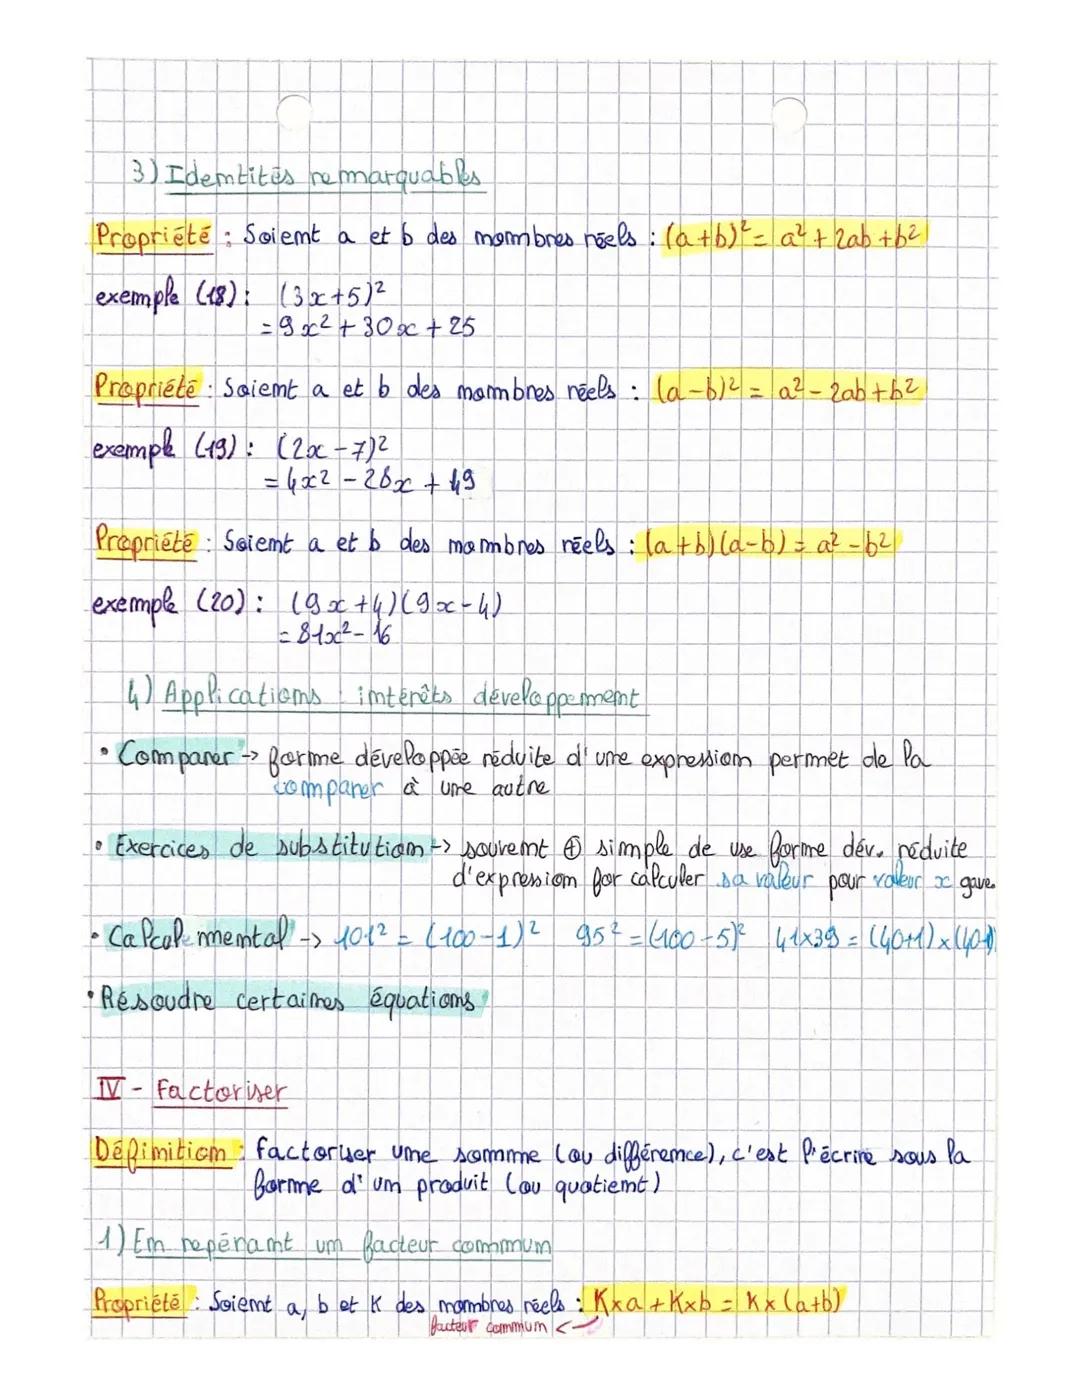 3) Identités remarquables
Propriété : Soient a et b des nombres réels : (a+b)² = a² + 2ab + b²
exemple (18) : (3x+5)²
= 9x² + 30x + 25
Propriété : Soient a et b des nombres réels : (a-b)² = a² - 2ab + b²
exemple (19) : (2x-7)²
= 4x² - 28x + 49
Propriété : Soient a et b des nombres réels : (a+b)(a-b) = a² - b²
exemple (20) : (9x+4)(9x-4)
= 81x² - 16
4) Applications : intérêts développement
• Comparer → forme développée réduite d'une expression permet de la
comparer à une autre
• Exercices de substitution → souvent ⊕ simple de use forme dév. réduite
d'expression for calculer sa valeur pour valeur x gave.
• Calcul mental → 101² = (100-1)² 95² = (100-5)² 41x39 = (40+1)x(40-1)
• Résoudre certaines équations
IV - Factoriser
Définition : factoriser une somme (ou différence), c'est l'écrire sous la
forme d'un produit (ou quotient)
1) En repérant un facteur commun
Propriété : Soient a, b et K des nombres réels : K×a + K×b = K×(a+b)
facteur commun ←